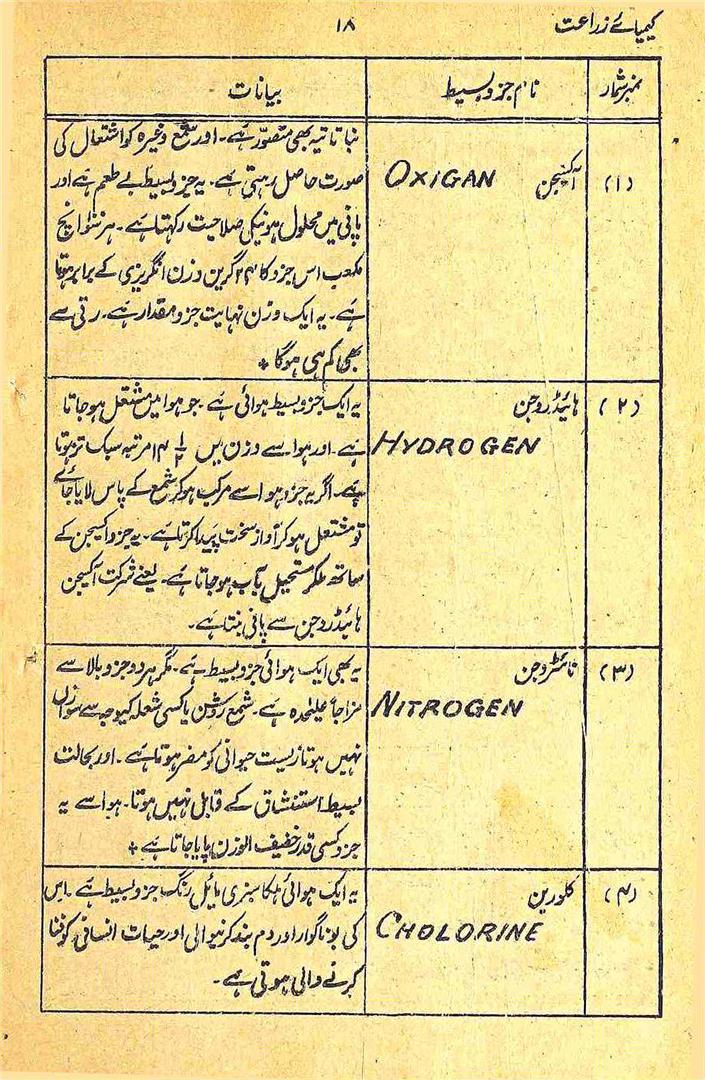 کیمیائے زراعت
۱۸
نمبر شمار
نام جزو بسیط
بیانات
(۱)
آکسیجن
OXIGAN
نباتاتیہ بھی متصوّر ہے۔ اور شمع وغیرہ کو اشتعال کی
صورت حاصل رہتی ہے۔ یہ جزو بسیط بے طعم ہے اور
پانی میں محلول ہونیکی صلاحیت رکھتا ہے۔ ہر نٹو انچ
مکعب اس جزو کا ۳۴ گرین وزن انگریزی کے برابر ہوتا
ہے۔ یہ ایک وزن نہایت جزو مقدار ہے۔ رتی سے
بھی کم ہی ہوگا *
(۲)
ہائیڈروجن
HYDROGEN
یہ ایک جزو بسیط ہوائی ہے جو ہوا میں مشتعل ہو جاتا
ہے۔ اور ہوا سے وزن میں ۱۴ ۱/۲ مرتبہ سبک تر ہوتا
ہے۔ اگر یہ جزو ہوا سے مرکب ہو کر شمع کے پاس لایا جائے
تو مشتعل ہو کر آواز سخت پیدا کرتا ہے۔ یہ جزو اکسیجن کے
ساتھ ملکر مستحیل بآب ہو جاتا ہے۔ یعنے شرکت آکسیجن
ہائیڈروجن سے پانی بنتا ہے۔
(۳)
نائٹروجن
NITROGEN
یہ بھی ایک ہوائی جزو بسیط ہے۔ مگر ہر دو جزو بالا سے
مزاجاً علیٰحدہ ہے۔ شمع روشن یا کسی شعلہ کیوجہ سے سوزاں
نہیں ہوتا زیست حیوانی کو مضر ہوتا ہے۔ اور بحالت
بسیط استنشاق کے قابل نہیں ہوتا۔ ہوا سے یہ
جزو کسی قدر خفیف الوزن پایا جاتا ہے *
(۴)
کلورین
CHOLORINE
یہ ایک ہوائی ہلکا سبزی مائل رنگ جزو بسیط ہے۔ اس
کی بو ناگوار اور دم بند کرنیوالی اور حیات انسانی کو فنا
کرنے والی ہوتی ہے۔